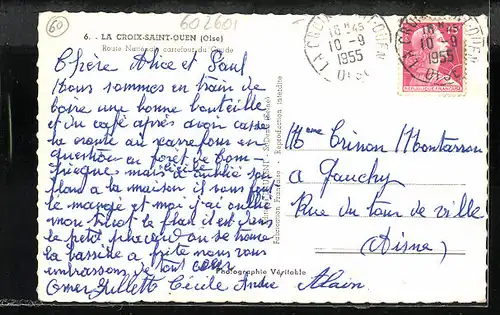 60
602601
6. - LA CROIX-SAINT-OUEN (Oise)
Route Nationale carrefour du
Chère Alice et Paul
Nous sommes en train de
boire une bonne bouteille
et du café après avoir cassé
la croute au carrefour en
question en foret de Com
piègne mais a oublié son
flan a la maison il vous faut
le mangé et moi j'ai oublié
mon tricot le flan il est dans
le petit placard ou se trouve
la bassine a frite nous vous
embrassons de tout cœur
Omer Juliette Cécile André Alain
Photographie Véritable
Reproduction interdite
Fabrication Française
LA CROIX-ST-OUEN
18 H 45
10 - 9
1955
OISE
LA CROIX
18 H 45
10 - 9
1955
OISE
REPUBLIQUE FRANÇAISE
Mme Crinon Montarron
a Gauchy
Rue du tour de ville
(Aisne)